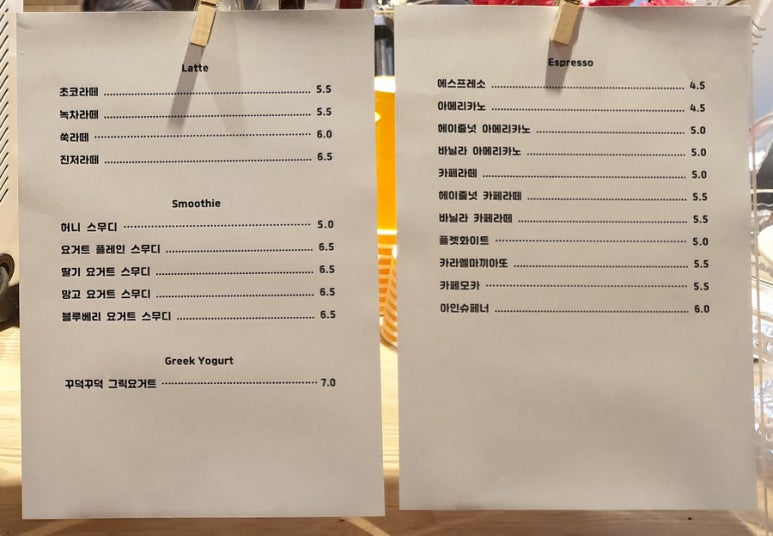 Latte
초코라떼 5.5
녹차라떼 5.5
쑥라떼 6.0
진저라떼 6.5
Smoothie
허니 스무디 5.0
요거트 플레인 스무디 6.5
딸기 요거트 스무디 6.5
망고 요거트 스무디 6.5
블루베리 요거트 스무디 6.5
Greek Yogurt
꾸덕꾸덕 그릭요거트 7.0
Espresso
에스프레소 4.5
아메리카노 4.5
헤이즐넛 아메리카노 5.0
바닐라 아메리카노 5.0
카페라떼 5.0
헤이즐넛 카페라떼 5.5
바닐라 카페라떼 5.5
플렛화이트 5.0
카라멜마끼아또 5.5
카페모카 5.5
아인슈페너 6.0